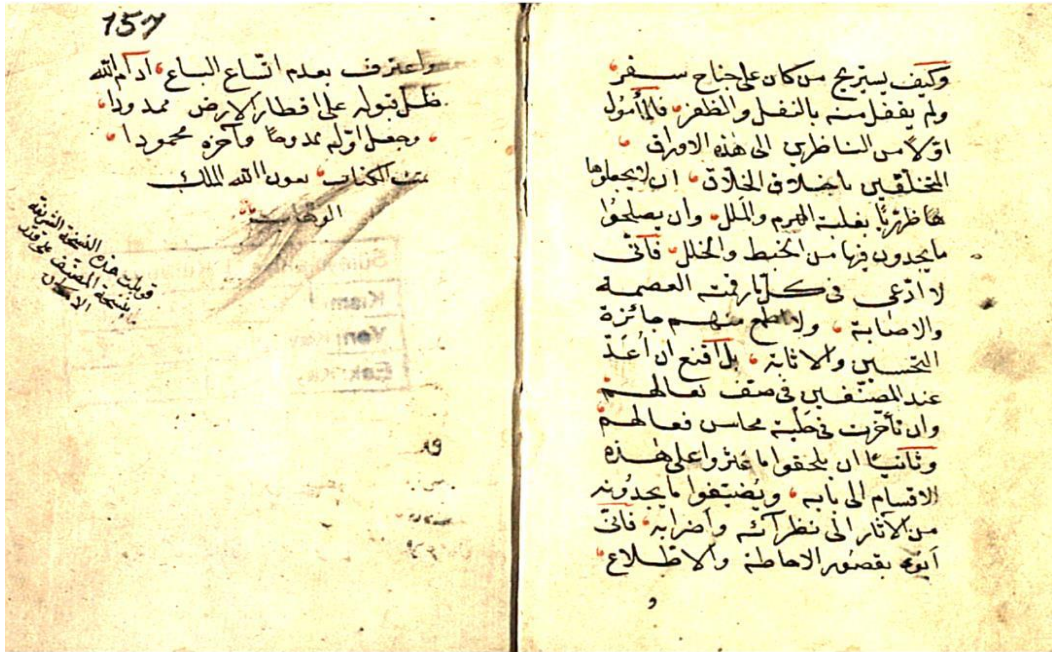 وكيف يستريح من كان على جناح سفر
ولم يقفل منه بالنفل والظفر فالمأمول
اولاً من الناظرين الى هذه الاوراق
المتخلقين باخلاق الخلاق ان لا يجعلوها
ظهريًا بغلبة الهرم والملل وان يصلحوا
ما يجدون فيها من الخبط والخلل فانّى
لا ادّعى فى كل بارقة العصمة
والاصابة ولا اطمع منهم جائزة
التحسين والاثابة بل اقنع ان اُعَدّ
عند المصنّفين فى صف نعالهم
وان تأخّرت فى حَلْبة محاسن فعالهم
وثانيًا ان يلحقوا ما عثروا على هذه
الاقسام الى بابه ويُضيّفوا ما يجدُونه
من الآثار الى نظرآئه وأضرابه فانّى
بقصُور الاحاطة والاطلاع
و
157
واعترف بعدم اتّساع الباع ادام الله
ظلّ قبوله على اقطار الارض ممدودا
وجعل اوّله ممدوحًا وآخره محمودا
تمت الكتاب بعون الله الملك
الوهاب
قوبلت هذه النسخة الشريفة
بنسخة المصنّف على قدر
الامكان